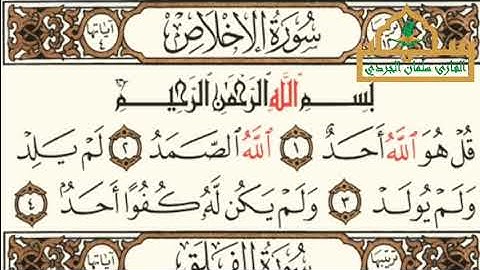 سُورَةُ الإِخْلَاصِ
آيَاتُهَا ٤
القارئ سلمان الجردي
بِسْمِ اللَّهِ الرَّحْمَٰنِ الرَّحِيمِ
قُلْ هُوَ اللَّهُ أَحَدٌ ١ اللَّهُ الصَّمَدُ ٢ لَمْ يَلِدْ
وَلَمْ يُولَدْ ٣ وَلَمْ يَكُن لَّهُ كُفُوًا أَحَدٌ ٤
ترتيبها
سُورَةُ الفَلَقِ
آيَاتُهَا